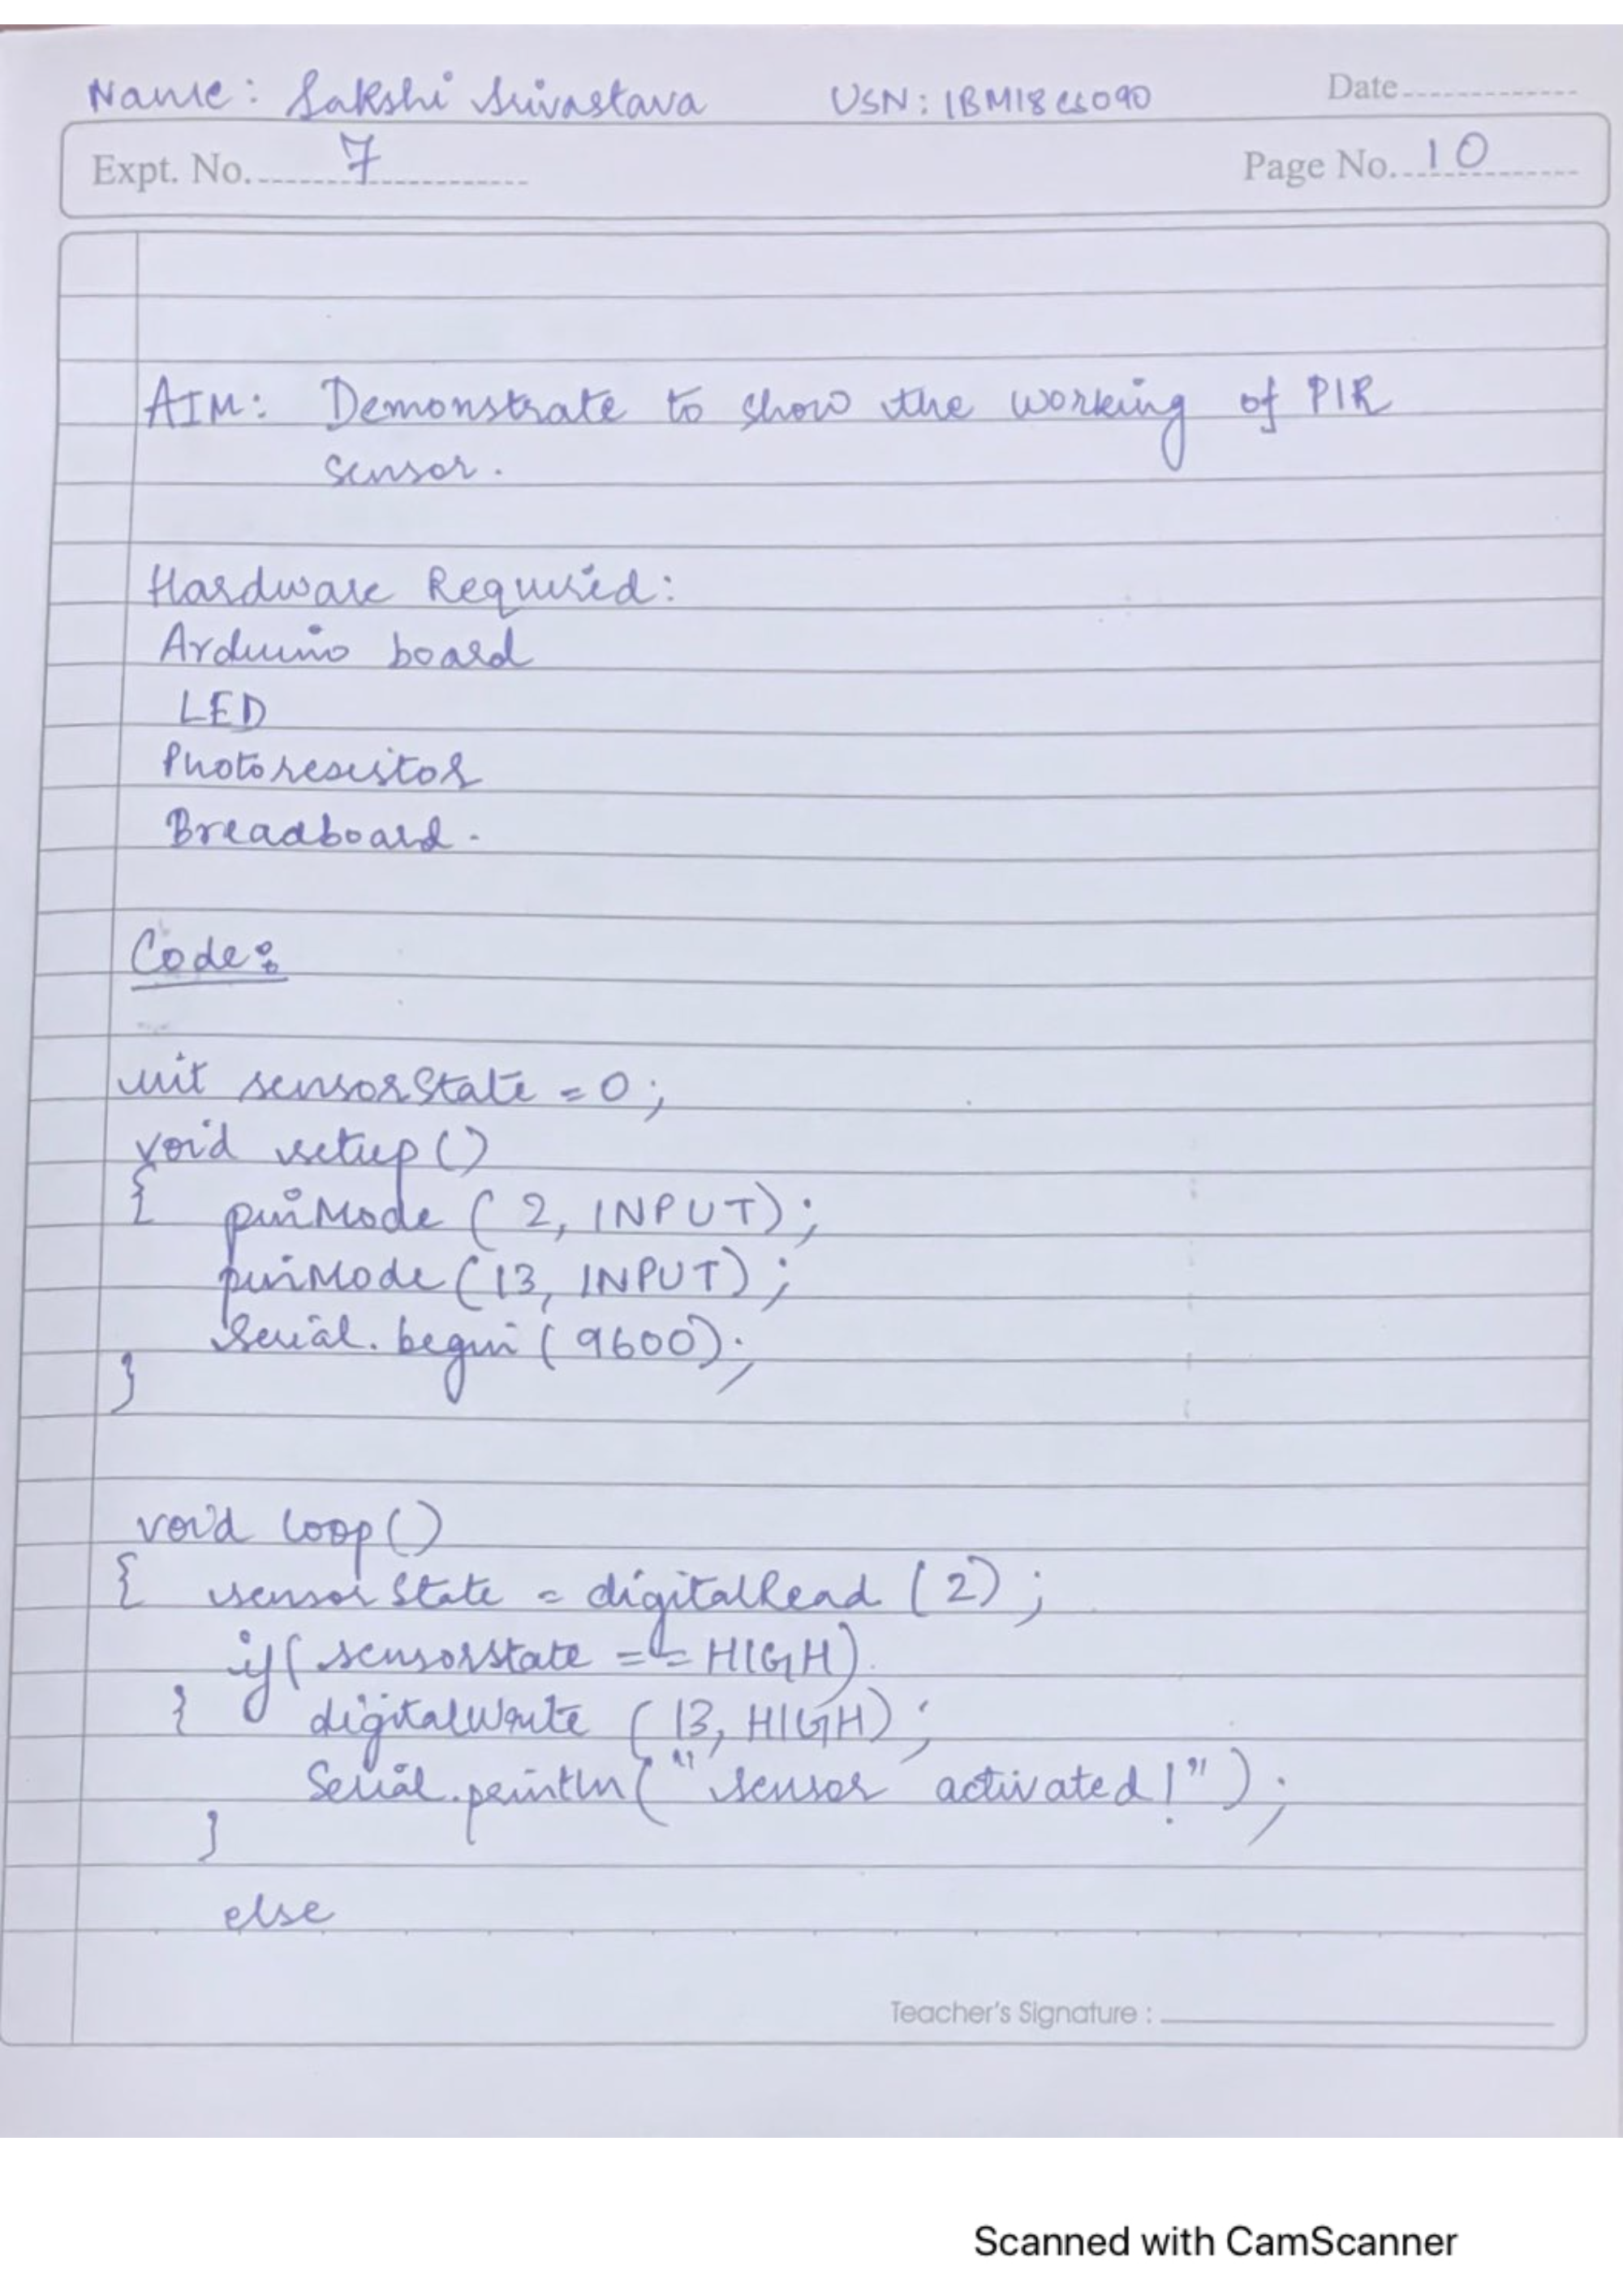 Name: Sakshi Srivastava USN: 1BM18CS090 Date
Expt. No. 7 Page No. 10
AIM: Demonstrate to show the working of PIR
sensor.
Hardware Required:
Arduino board
LED
Photoresistor
Breadboard.
Code:
int sensorState = 0;
void setup()
{ pinMode (2, INPUT);
pinMode (13, INPUT);
Serial.begin (9600);
}
void loop()
{ sensorState = digitalRead (2);
if( sensorstate == HIGH)
{ digitalWrite (13, HIGH);
Serial.println(" sensor activated!");
}
else
Teacher's Signature :
Scanned with CamScanner